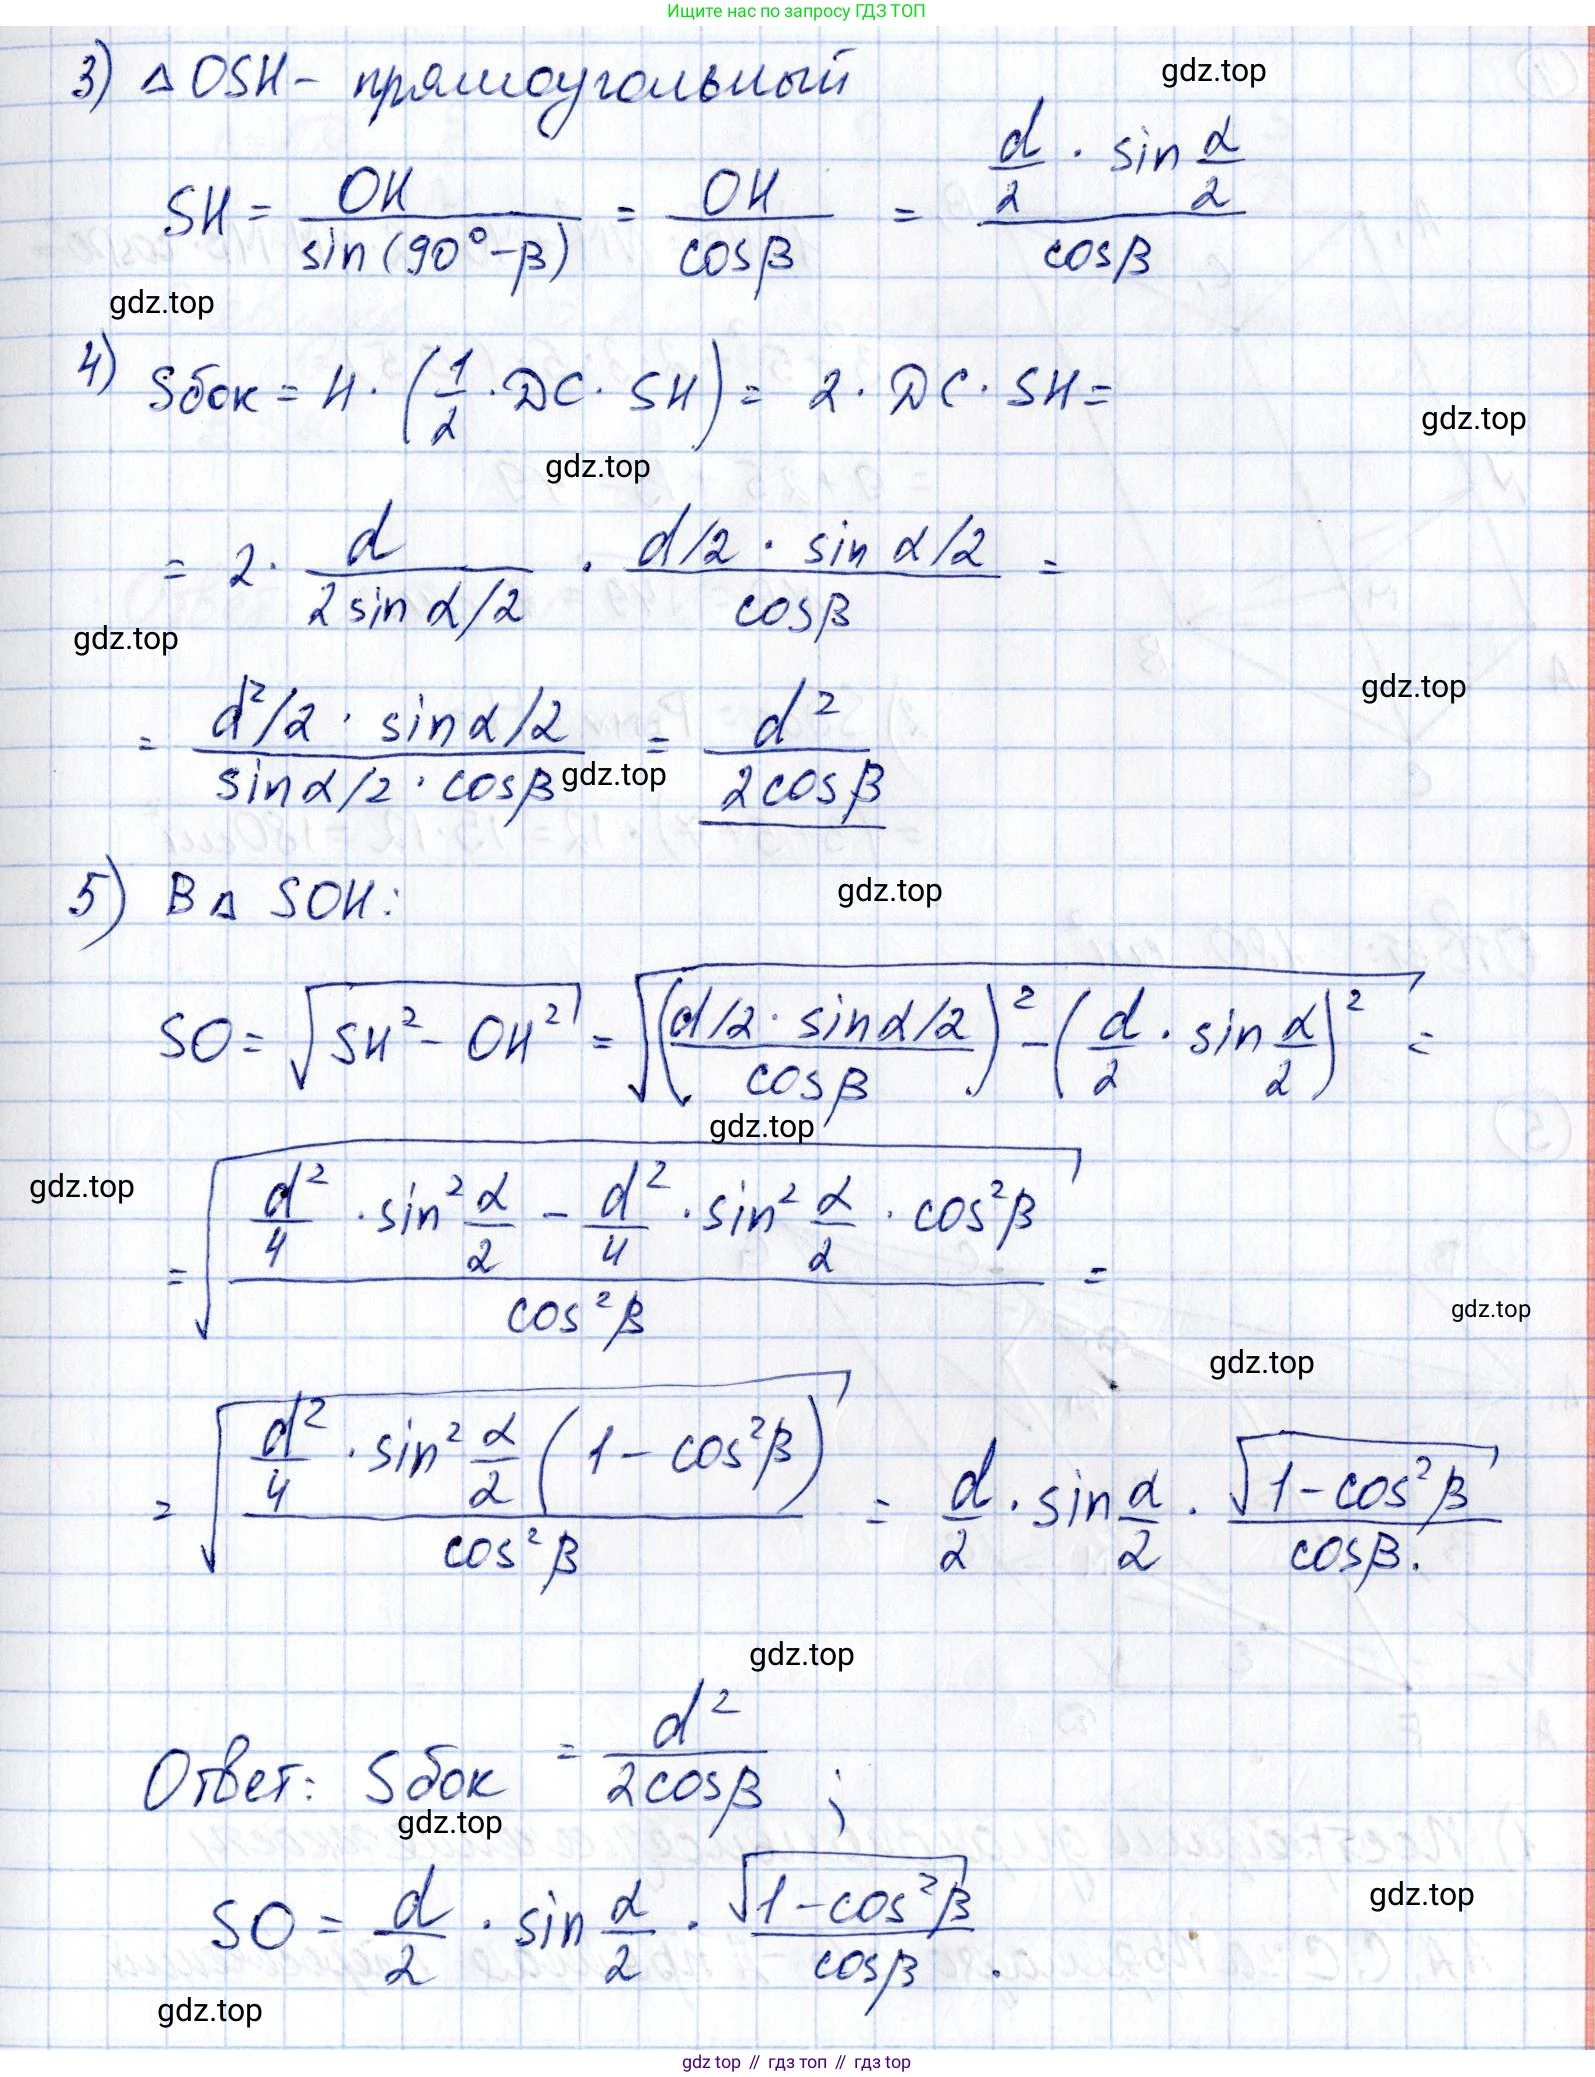 Ищите нас по запросу ГДЗ ТОП
3) Δ OSH - прямоугольный
gdz.top
SH = OH / sin(90° - β) = OH / cosβ = (d/2 · sin α/2) / cosβ
gdz.top
4) Sбок = 4 · (1/2 · DC · SH) = 2 · DC · SH =
gdz.top
gdz.top
= 2 · d / (2 sin α/2) · (d/2 · sin α/2) / cosβ =
gdz.top
gdz.top
= (d²/2 · sin α/2) / (sin α/2 · cosβ) = d² / (2cosβ)
gdz.top
5) В Δ SOH:
gdz.top
SO = √(SH² - OH²) = √(((d/2 · sin α/2) / cosβ)² - (d/2 · sin α/2)²) =
gdz.top
gdz.top
= √((d²/4 · sin² α/2 - d²/4 · sin² α/2 · cos²β) / cos²β) =
gdz.top
gdz.top
= √((d²/4 · sin² α/2 (1 - cos²β)) / cos²β) = d/2 · sin α/2 · √(1 - cos²β) / cosβ.
gdz.top
Ответ: Sбок = d² / (2cosβ) ;
gdz.top
SO = d/2 · sin α/2 · √(1 - cos²β) / cosβ .
gdz.top
gdz.top
gdz top // гдз топ // gdz top